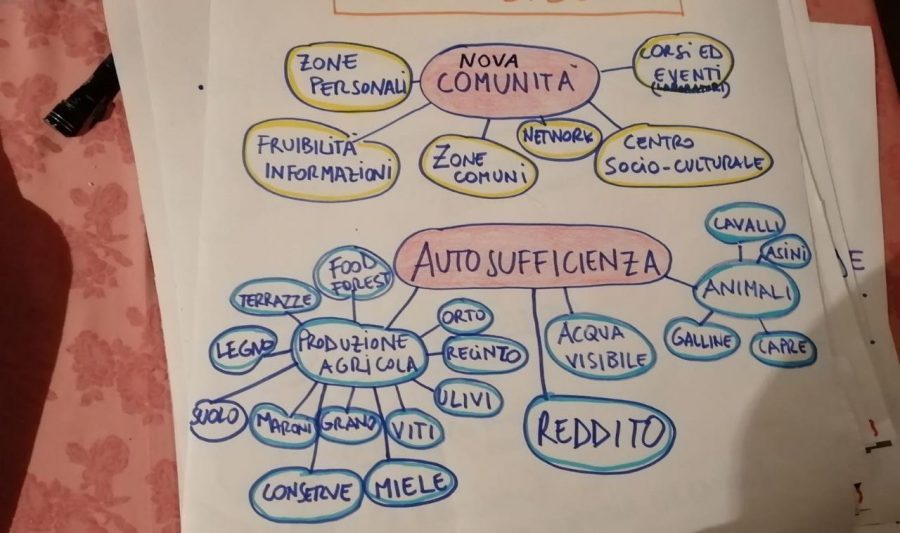 NOVA
COMUNITÀ
ZONE
PERSONALI
CORSI ED
EVENTI
(LABORATORI)
FRUIBILITÀ
INFORMAZIONI
ZONE
COMUNI
NETWORK
CENTRO
SOCIO-CULTURALE
AUTOSUFFICIENZA
CAVALLI
ASINI
ANIMALI
GALLINE
CAPRE
FOOD
FOREST
TERRAZZE
LEGNO
PRODUZIONE
AGRICOLA
ORTO
RECINTO
ULIVI
SUOLO
MARONI
GRANO
VITI
CONSERVE
MIELE
ACQUA
VISIBILE
REDDITO
E